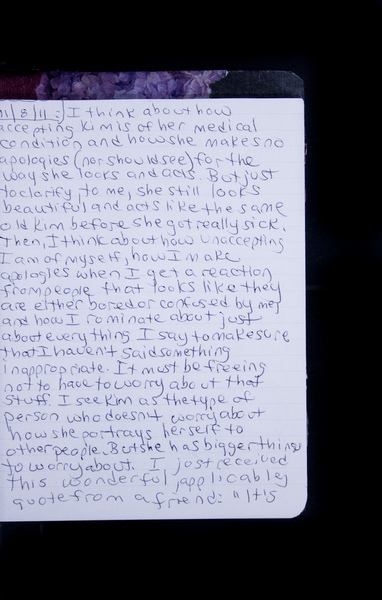 11/8/11: I think about how
accepting Kim is of her medical
condition and how she makes no
apologies (nor should see) for the
way she looks and acts. But just
to clarify, to me, she still looks
beautiful and acts like the same
old Kim before she got really sick.
Then, I think about how unaccepting
I am of myself, how I make
apologies when I get a reaction
from people that looks like they
are either bored or confused by me,
and how I rominate about just
about everything I say to make sure
that I haven't said something
inappropriate. It must be freeing
not to have to worry about that
stuff. I see Kim as the type of
person who doesn't worry about
how she portrays herself to
other people. But she has bigger things
to worry about. I just received
this wonderful, applicable,
quote from a friend: "It's